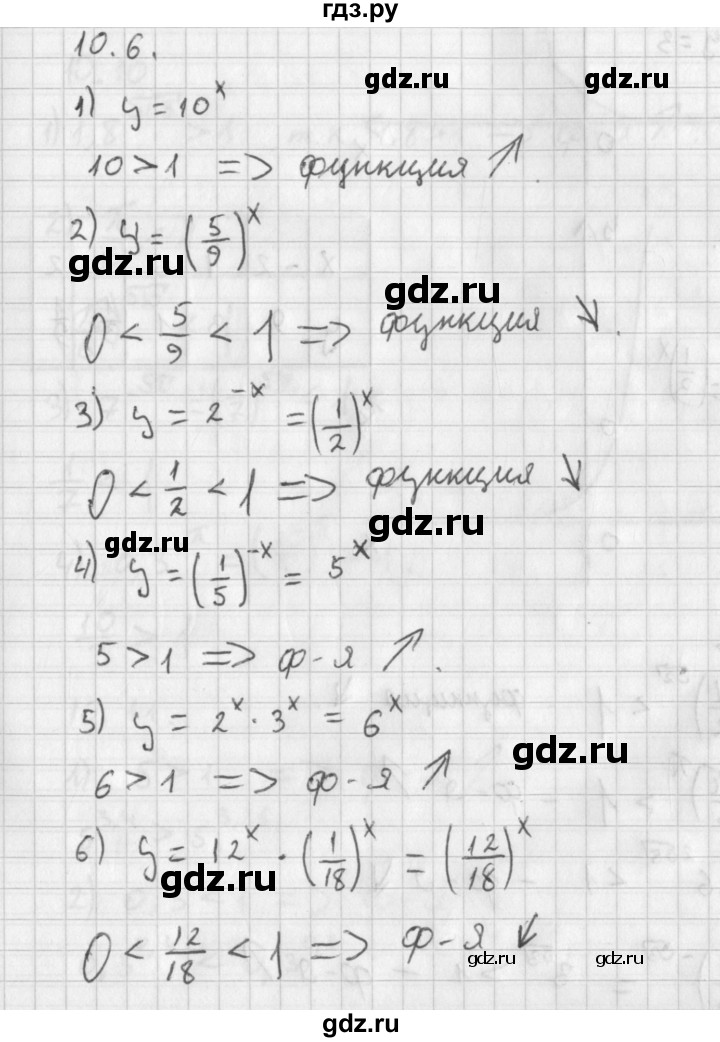 гдз.ру
10.6.
gdz.ru gdz.ru
1) y = 10^x
10 > 1 => функция ↗.
2) y = (5/9)^x
gdz.ru
gdz.ru
0 < 5/9 < 1 => функция ↘.
3) y = 2^-x = (1/2)^x
0 < 1/2 < 1 => функция ↘
gdz.ru
gdz.ru
4) y = (1/5)^-x = 5^x
5 > 1 => ф-я ↗.
5) y = 2^x · 3^x = 6^x
gdz.ru
6 > 1 => ф-я ↗
6) y = 12^x · (1/18)^x = (12/18)^x
gdz.ru
0 < 12/18 < 1 => ф-я ↘
gdz.ru gdz.ru
gdz.ru